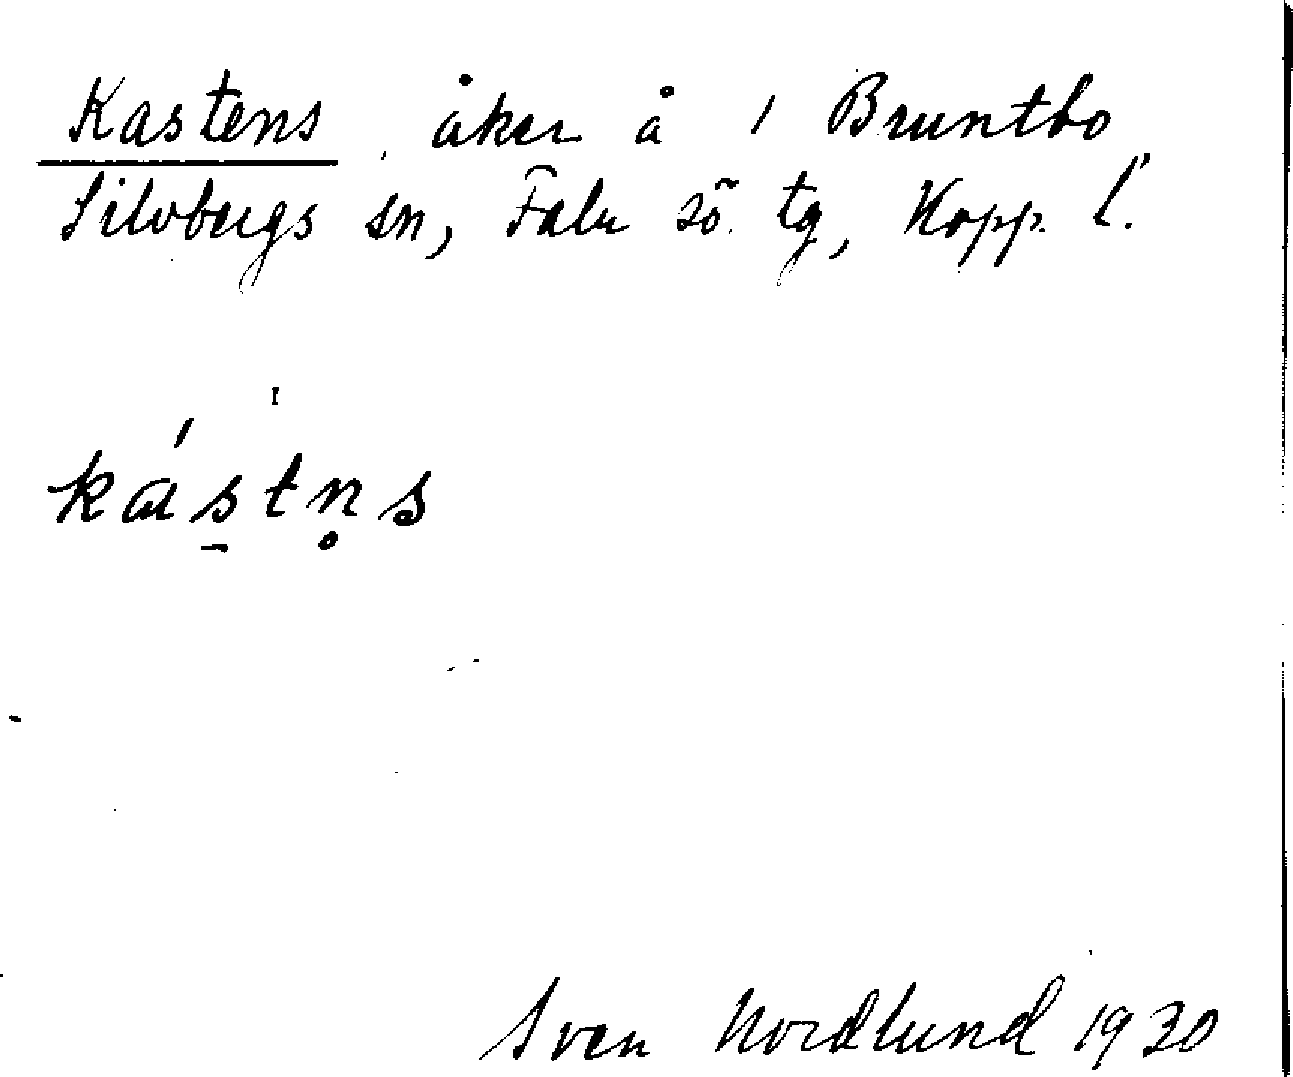 Kastens, åker å 1 Bruntbo
Silvbergs sn, Falu sö. tg, Kopp. l.
kástn̥s
Sven Nordlund 1930